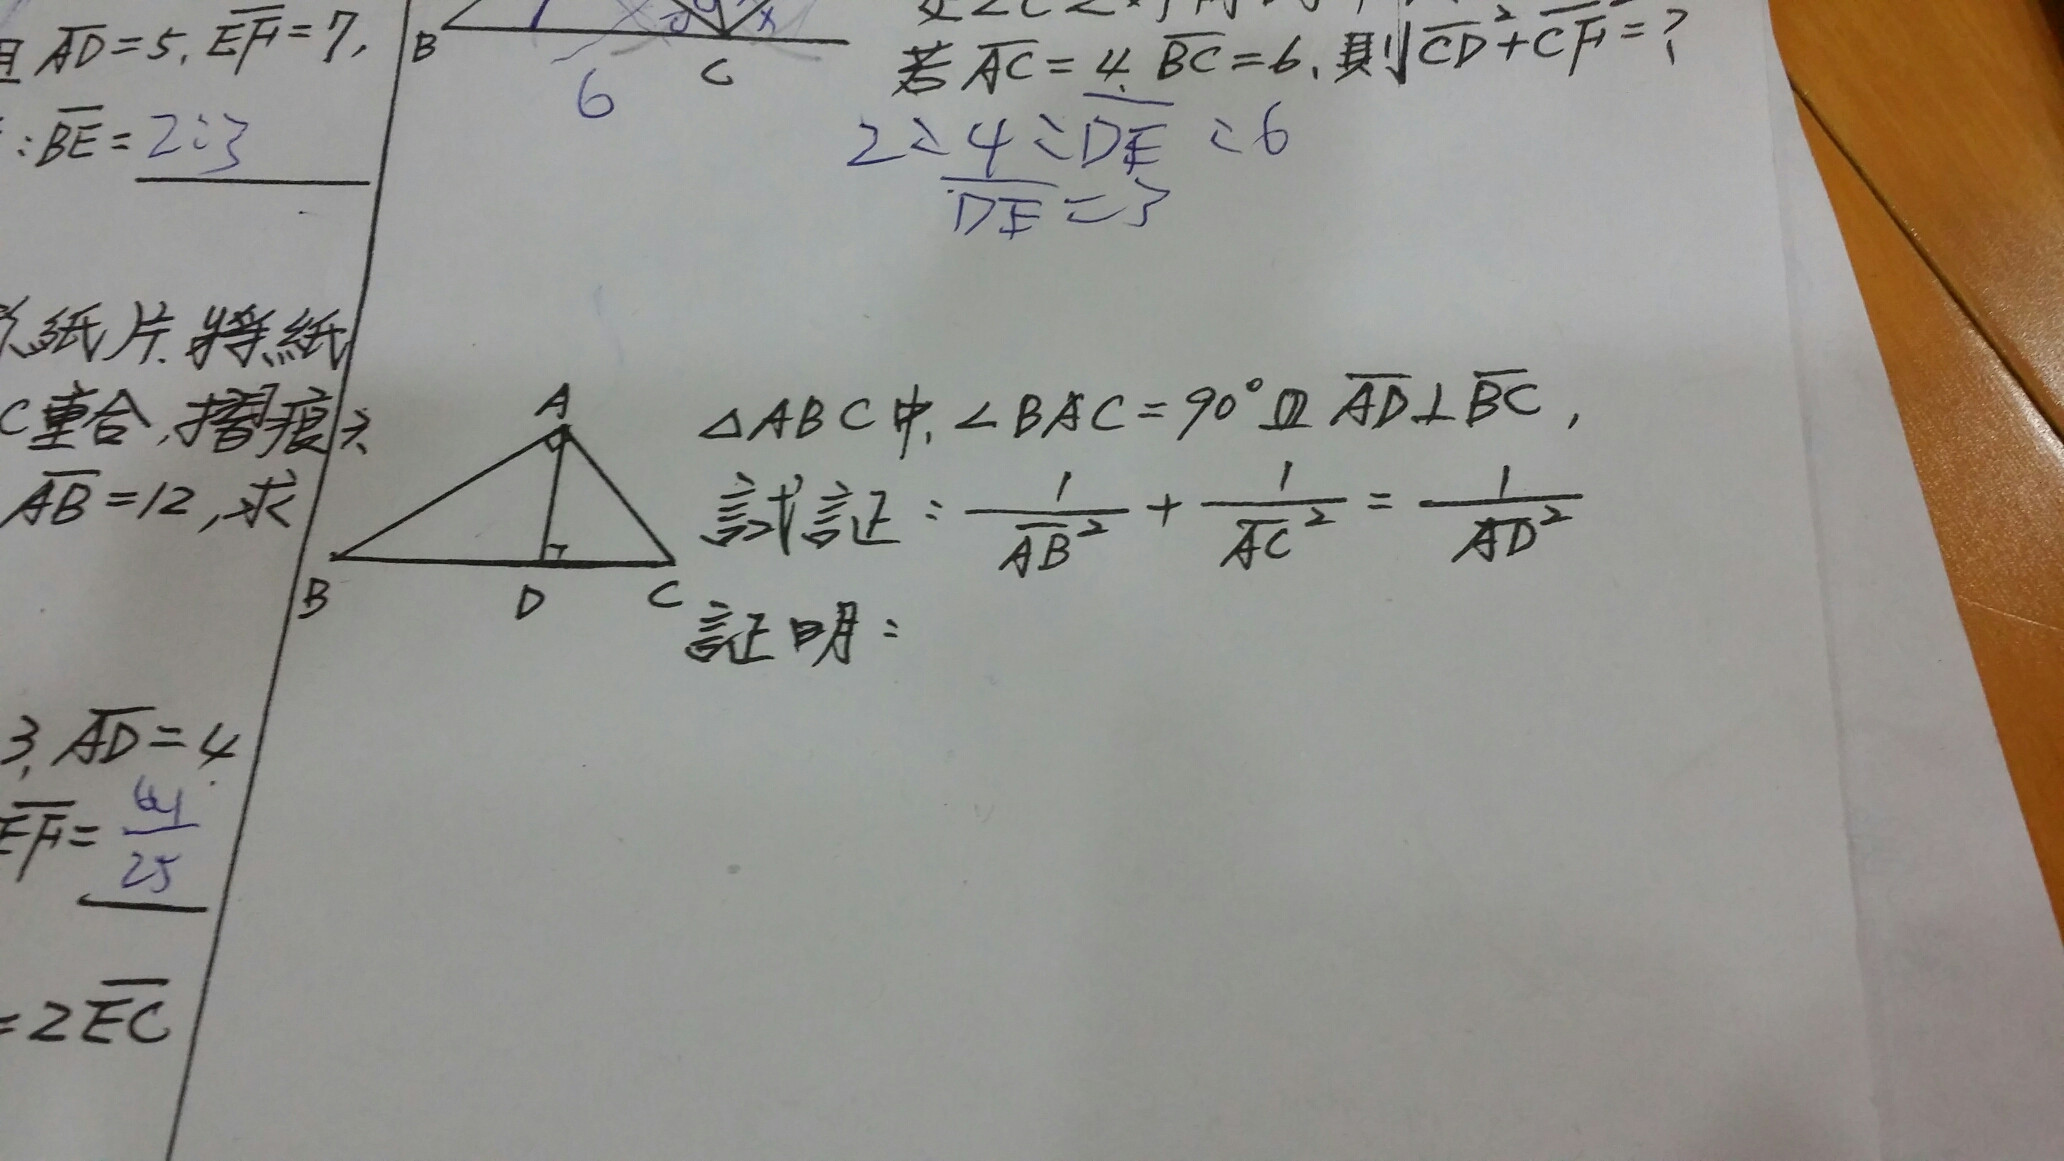 且 AD=5, EF=7,
:BE= 2:3
紙片.將紙
C重合,摺痕
AB=12,求
3, AD=4
EF= 64/25
=2EC
B
C
6
若 AC=4, BC=6, 則 CD²+CF²=?
2:4=DE:6
DE=3
A
B
D
C
△ABC中,∠BAC=90°且 AD⊥BC,
試証: 1/AB² + 1/AC² = 1/AD²
証明: